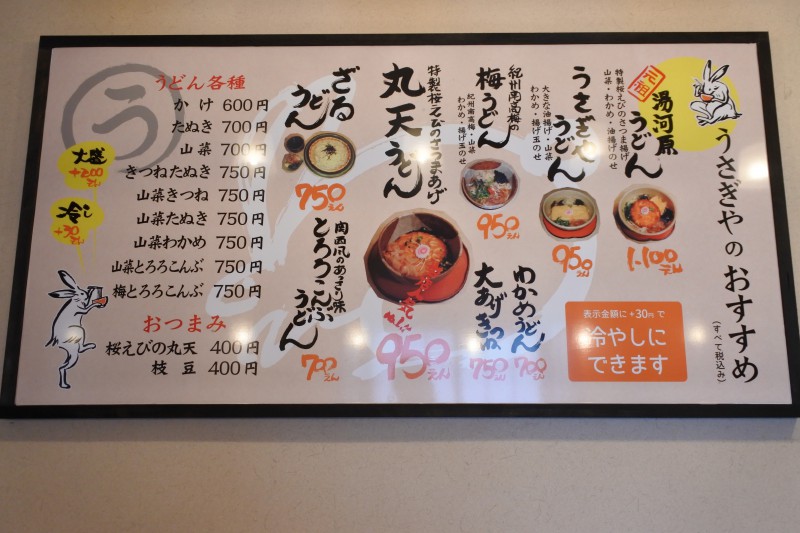 うさぎやのおすすめ
(すべて税込み)
元祖
湯河原うどん
特製桜えびのさつま揚げ
山菜・わかめ・油揚げのせ
1.100えん
うさぎやうどん
大きな油揚げ・山菜
わかめ・揚げ玉のせ
950えん
紀州南高梅の
梅うどん
紀州南高梅・山菜
わかめ・揚げ玉のせ
950えん
特製桜えびのさつまあげ
丸天うどん
950えん
わかめうどん
700えん
大あげきつね
750えん
表示金額に+30円で
冷やしに
できます
ざるうどん
750えん
関西風のあっさり味
とろろこんぶうどん
700えん
う
うどん各種
かけ 600円
たぬき 700円
山菜 700円
きつねたぬき 750円
山菜きつね 750円
山菜たぬき 750円
山菜わかめ 750円
山菜とろろこんぶ 750円
梅とろろこんぶ 750円
おつまみ
桜えびの丸天 400円
枝豆 400円
大盛
+200えん
冷し
+30えん